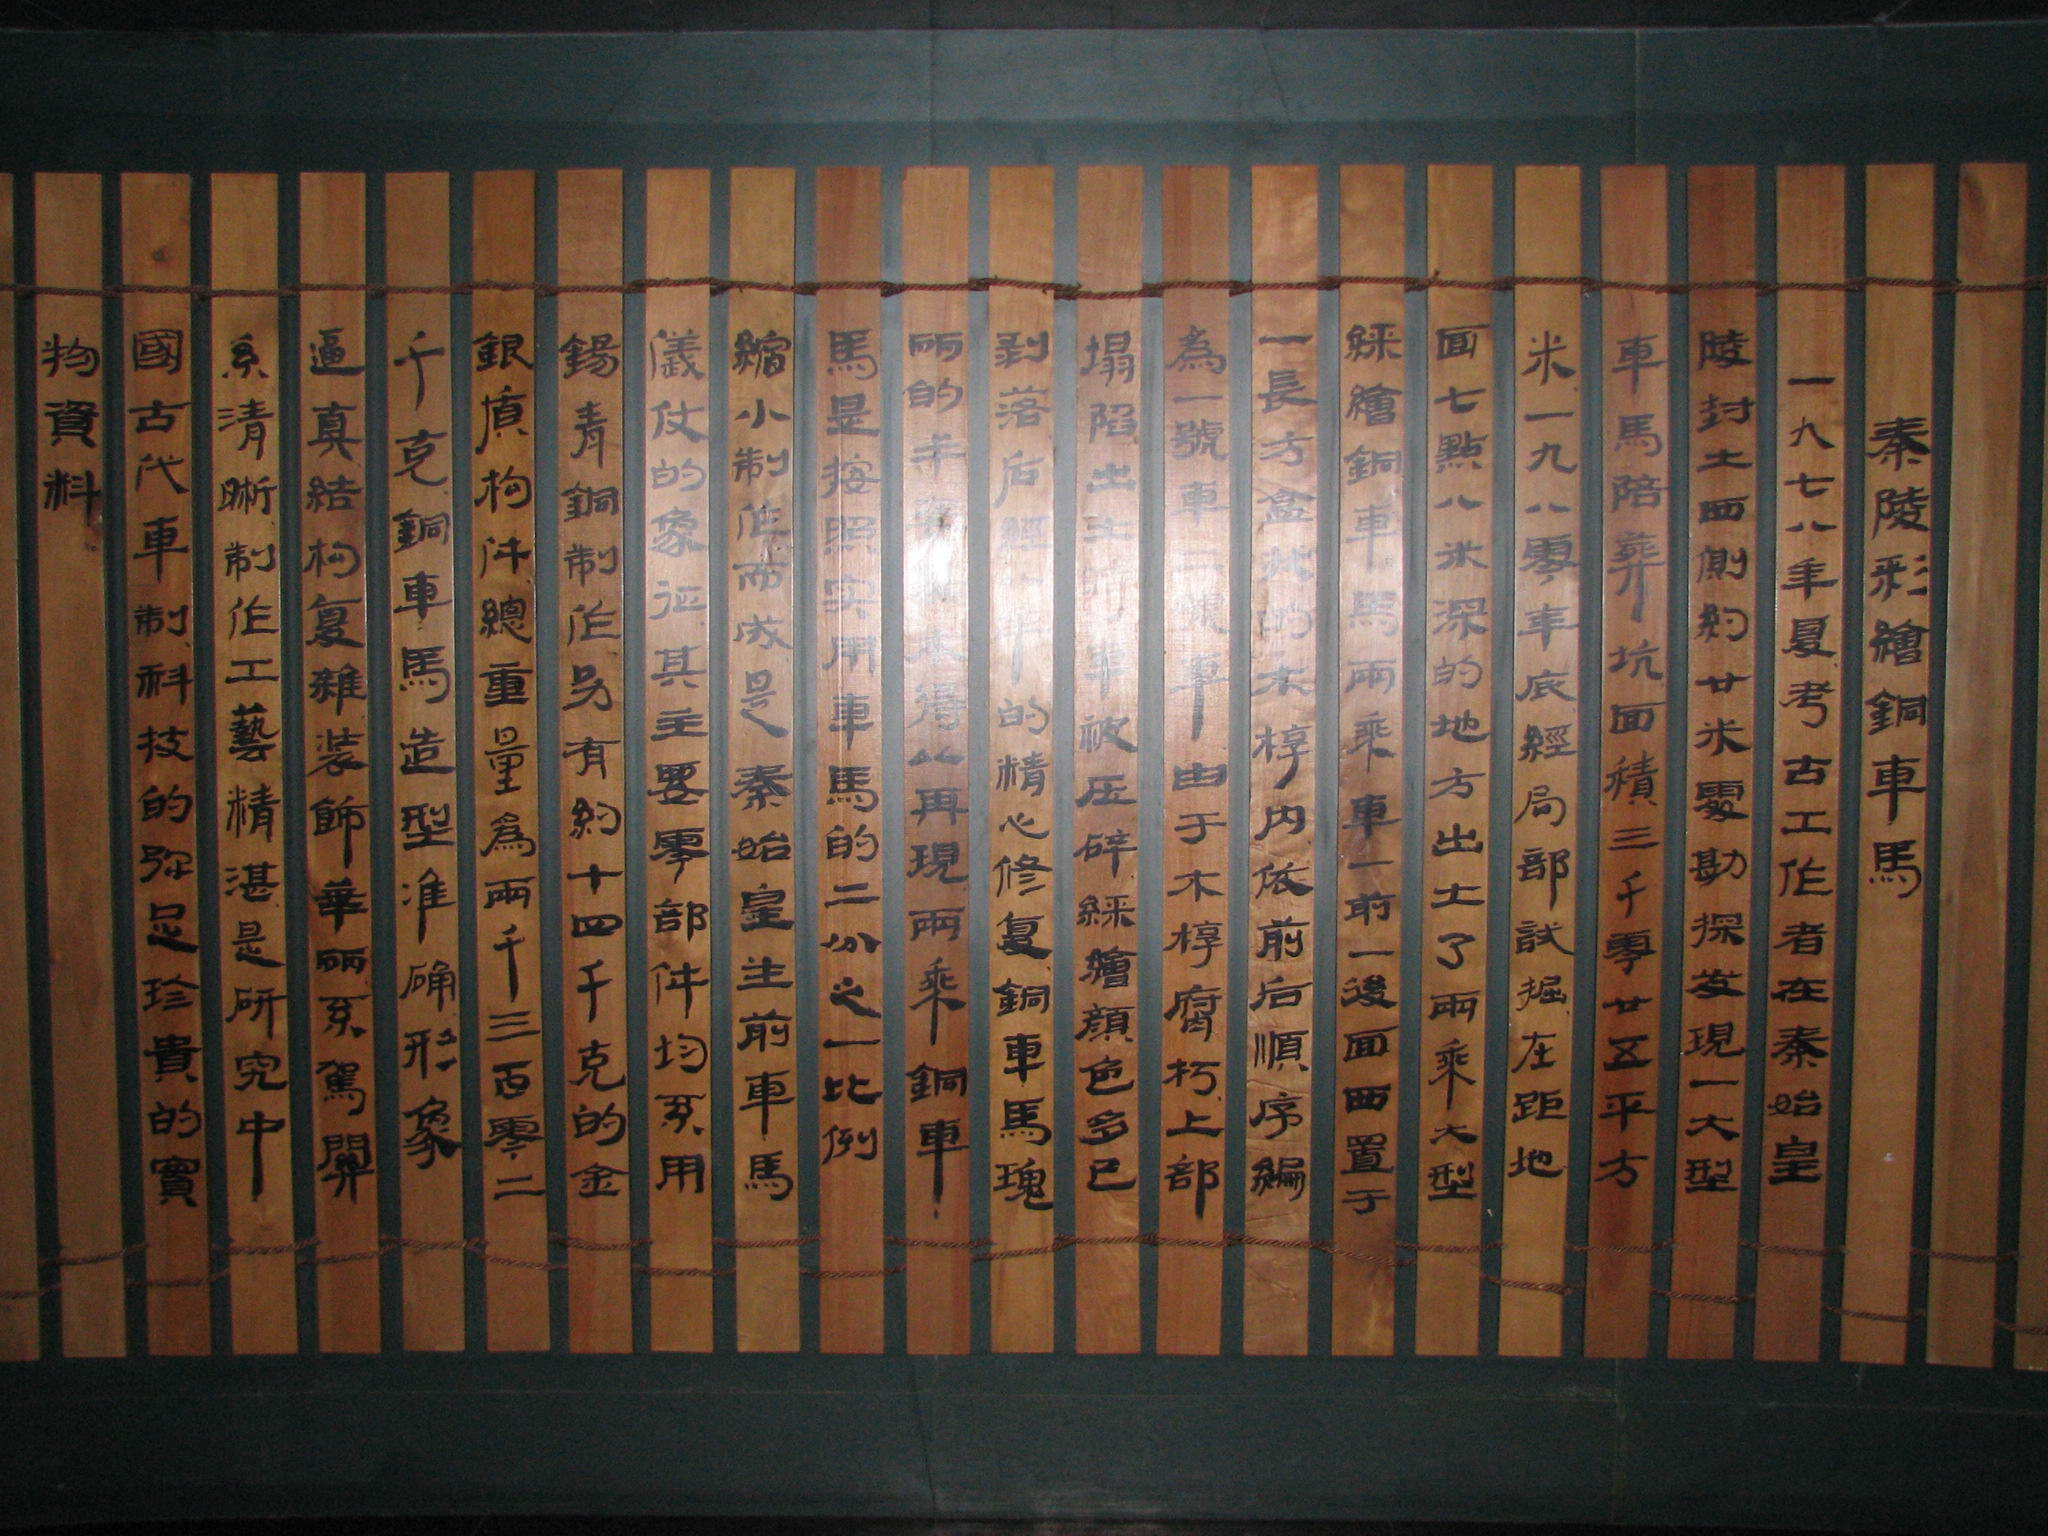 秦陵彩繪銅車馬
一九七八年夏考古工作者在秦始皇
陵封土西側約廿米處勘探发現一大型
車馬陪葬坑面積三千零廿五平方
米一九八零年底經局部試掘在距地
面七點八米深的地方出土了兩乘大型
綵繪銅車馬兩乘車一前一後面西置于
一長方盒狀的木椁内依前后順序編
為一號車二號車由于木椁腐朽上部
塌陷出土時車被压碎綵繪顔色多已
剥落后經八年的精心修复銅車馬瑰
丽的丰得以再現兩乘銅車
馬是按照实用車馬的二分之一比例
縮小制作而成是秦始皇生前車馬
儀仗的象征其主要零部件均系用
錫青銅制作另有約十四千克的金
銀質构件總重量為兩千三百零二
千克銅車馬造型准确形象
逼真結构复雜装飾華丽系駕關
系清晰制作工藝精湛是研究中
國古代車制科技的弥足珍貴的實
物資料